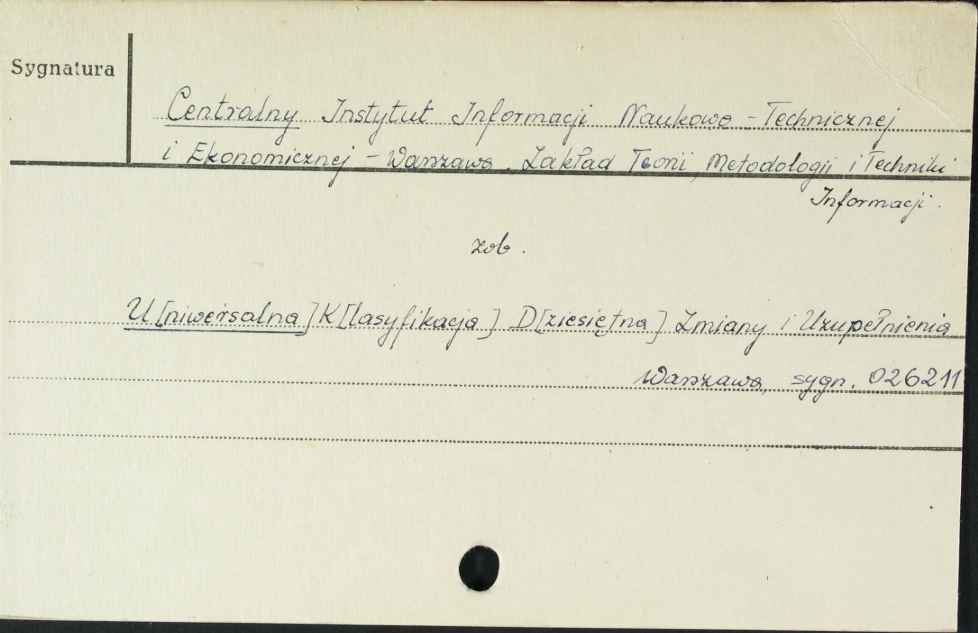 Sygnatura
Centralny Instytut Informacji Naukowo - Technicznej
i Ekonomicznej - Warszawa. Zakład Teorii, Metodologii i Techniki
Informacji.
zob.
U[niwersalna] K[lasyfikacja] D[ziesiętna] Zmiany i Uzupełnienia
Warszawa, sygn. 026211